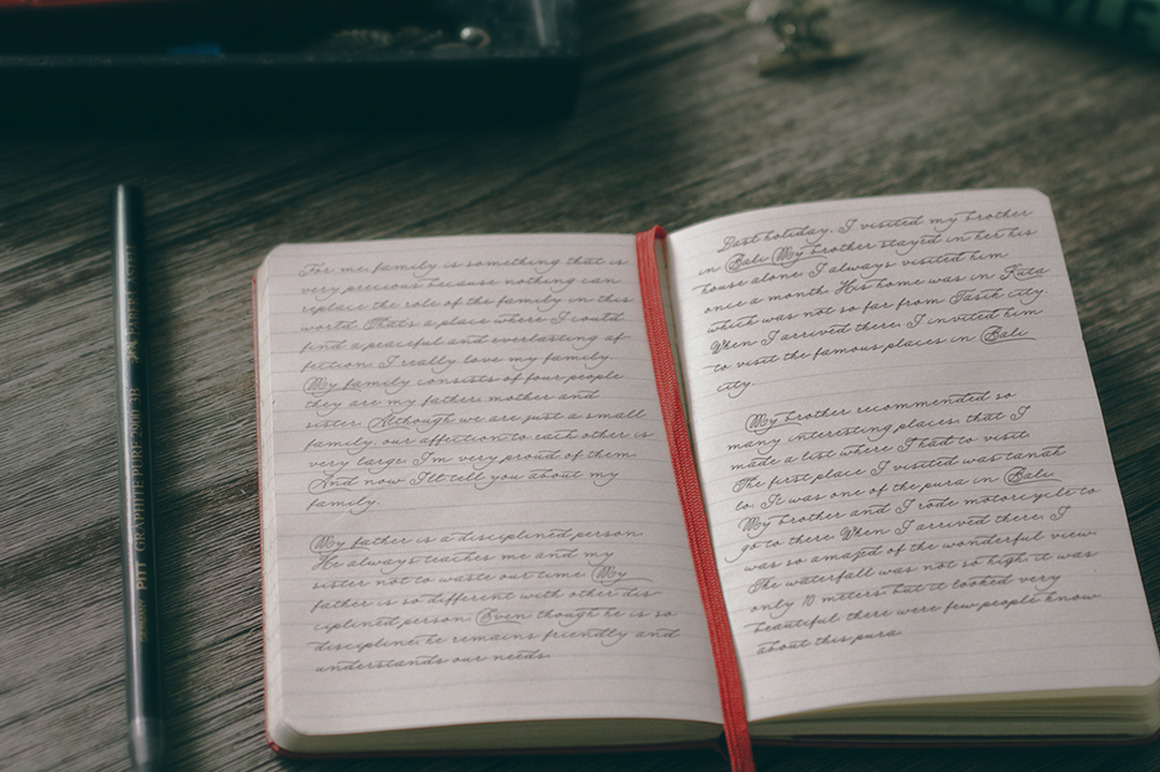 For me, family is something that is
very precious because nothing can
replace the role of the family in this
world. That's a place where I could
find a peaceful and everlasting af
fection. I really love my family.
My family consists of four people
they are my father, mother and
sister. Although we are just a small
family, our affection to each other is
very large. I'm very proud of them.
And now I'll tell you about my
family.
My father is a disciplined person.
He always teaches me and my
sister not to waste our time. My
father is so different with other dis-
ciplined person. Even though he is so
discipline, he remains friendly and
understands our needs.
Last holiday. I visited my brother
in Bali. My brother stayed in her his
house alone. I always visited him
once a month. His home was in Kuta
which was not so far from Tasik city.
When I arrived there, I invited him
to visit the famous places in Bali
city.
My brother recommended so
many interesting places, that I
made a list where I had to visit.
The first place I visited was tanah
lo. It was one of the pura in Bali.
My brother and I rode motorcycle to
go to there. When I arrived there, I
was so amazed of the wonderful view.
The waterfall was not so high, it was
only 10 meters but it looked very
beautiful. there were few people know
about this pura.
PITT GRAPHITE PURE 2900 3B